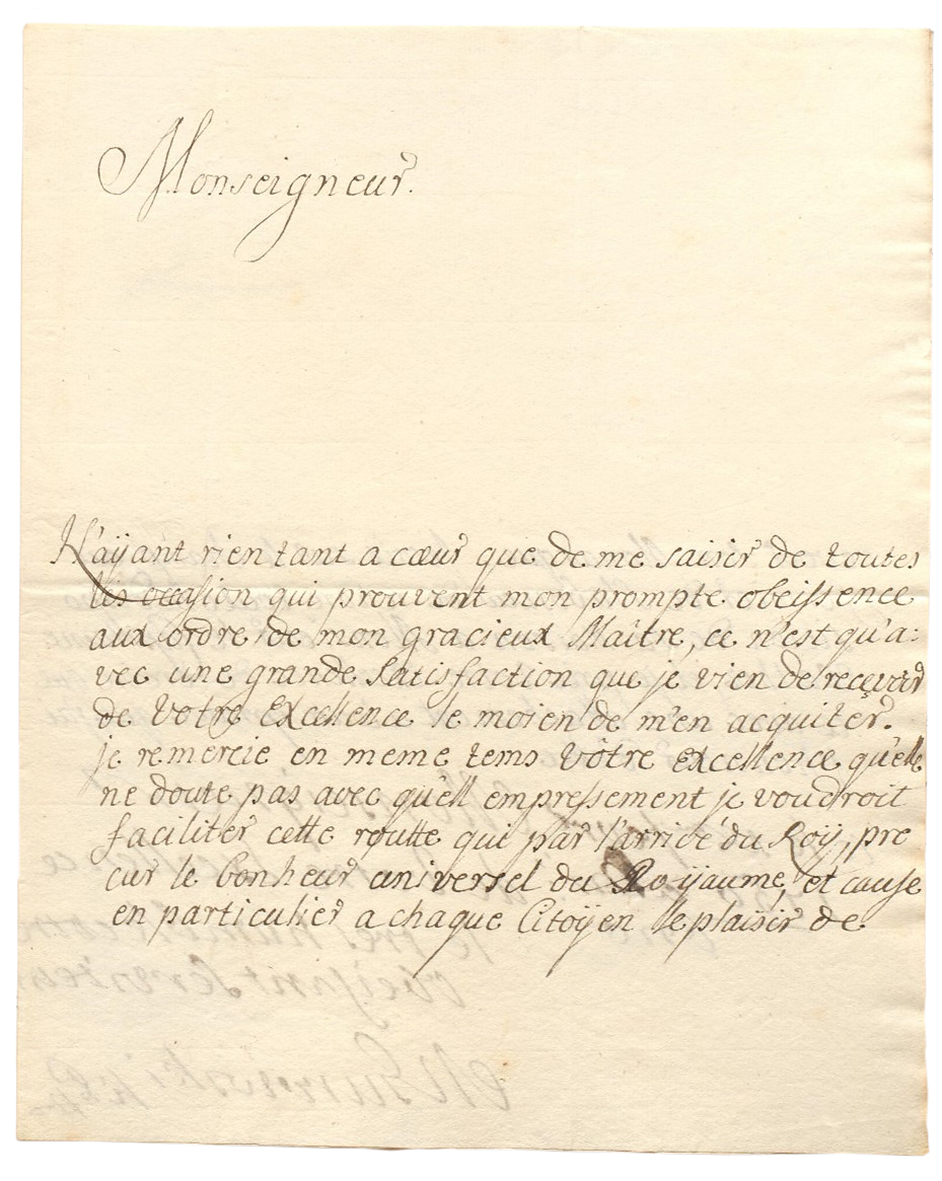 Monseigneur.
N'aÿant rien tant a cœur que de me saisir de toutes
les occasion qui prouvent mon prompte obeissence
aux ordre de mon gracieux Maitre, ce n'est qu'a:
vec une grande Satisfaction que je vien de reçevoir
de Votre Excellence le moien de m'en acquiter.
je remercie en meme tems Vôtre Excellence qu'elle
ne doute pas avec qu'ell empressement je voudroit
faciliter cette routte qui par l'arrivé du Roÿ, pro
cur le bonheur universel du Roÿaume, et cause
en particulier a chaque Citoÿen le plaisir de